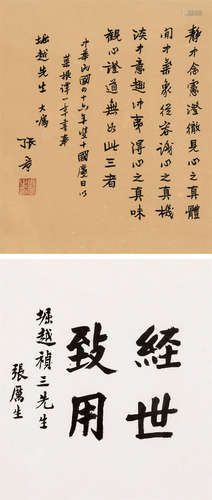 靜中念慮澄徹見心之真體
閒中氣象從容識心之真機
淡中意趣沖夷得心之真味
觀心證道無如此三者
中華民國四十六年雙十國慶日以
菜根譚一章書奉
堀越先生 大屬
張羣
經世
致用
堀越禎三先生
張厲生